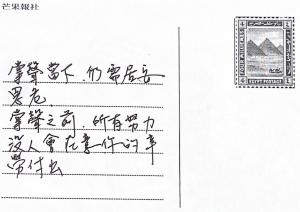 芒果報社
掌聲當下,仍需居安
思危
掌聲之前,所有努力
沒人會在意你的辛
勞付出
EGYPT POSTAGE